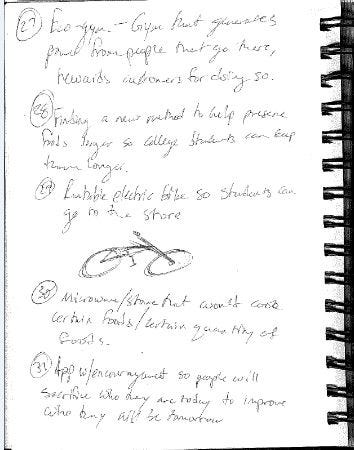 27) Eco-gym - Gym that generates
power from people that go there,
rewards customers for doing so.
28) Finding a new method to help preserve
foods longer so college students can keep
them longer.
29) Rentable electric bike so students can
go to the store
30) Microwave/stove that won't cook
certain foods/certain quantity of
foods.
31) App w/encouragement so people will
sacrifice who they are today to improve
who they will be tomorrow